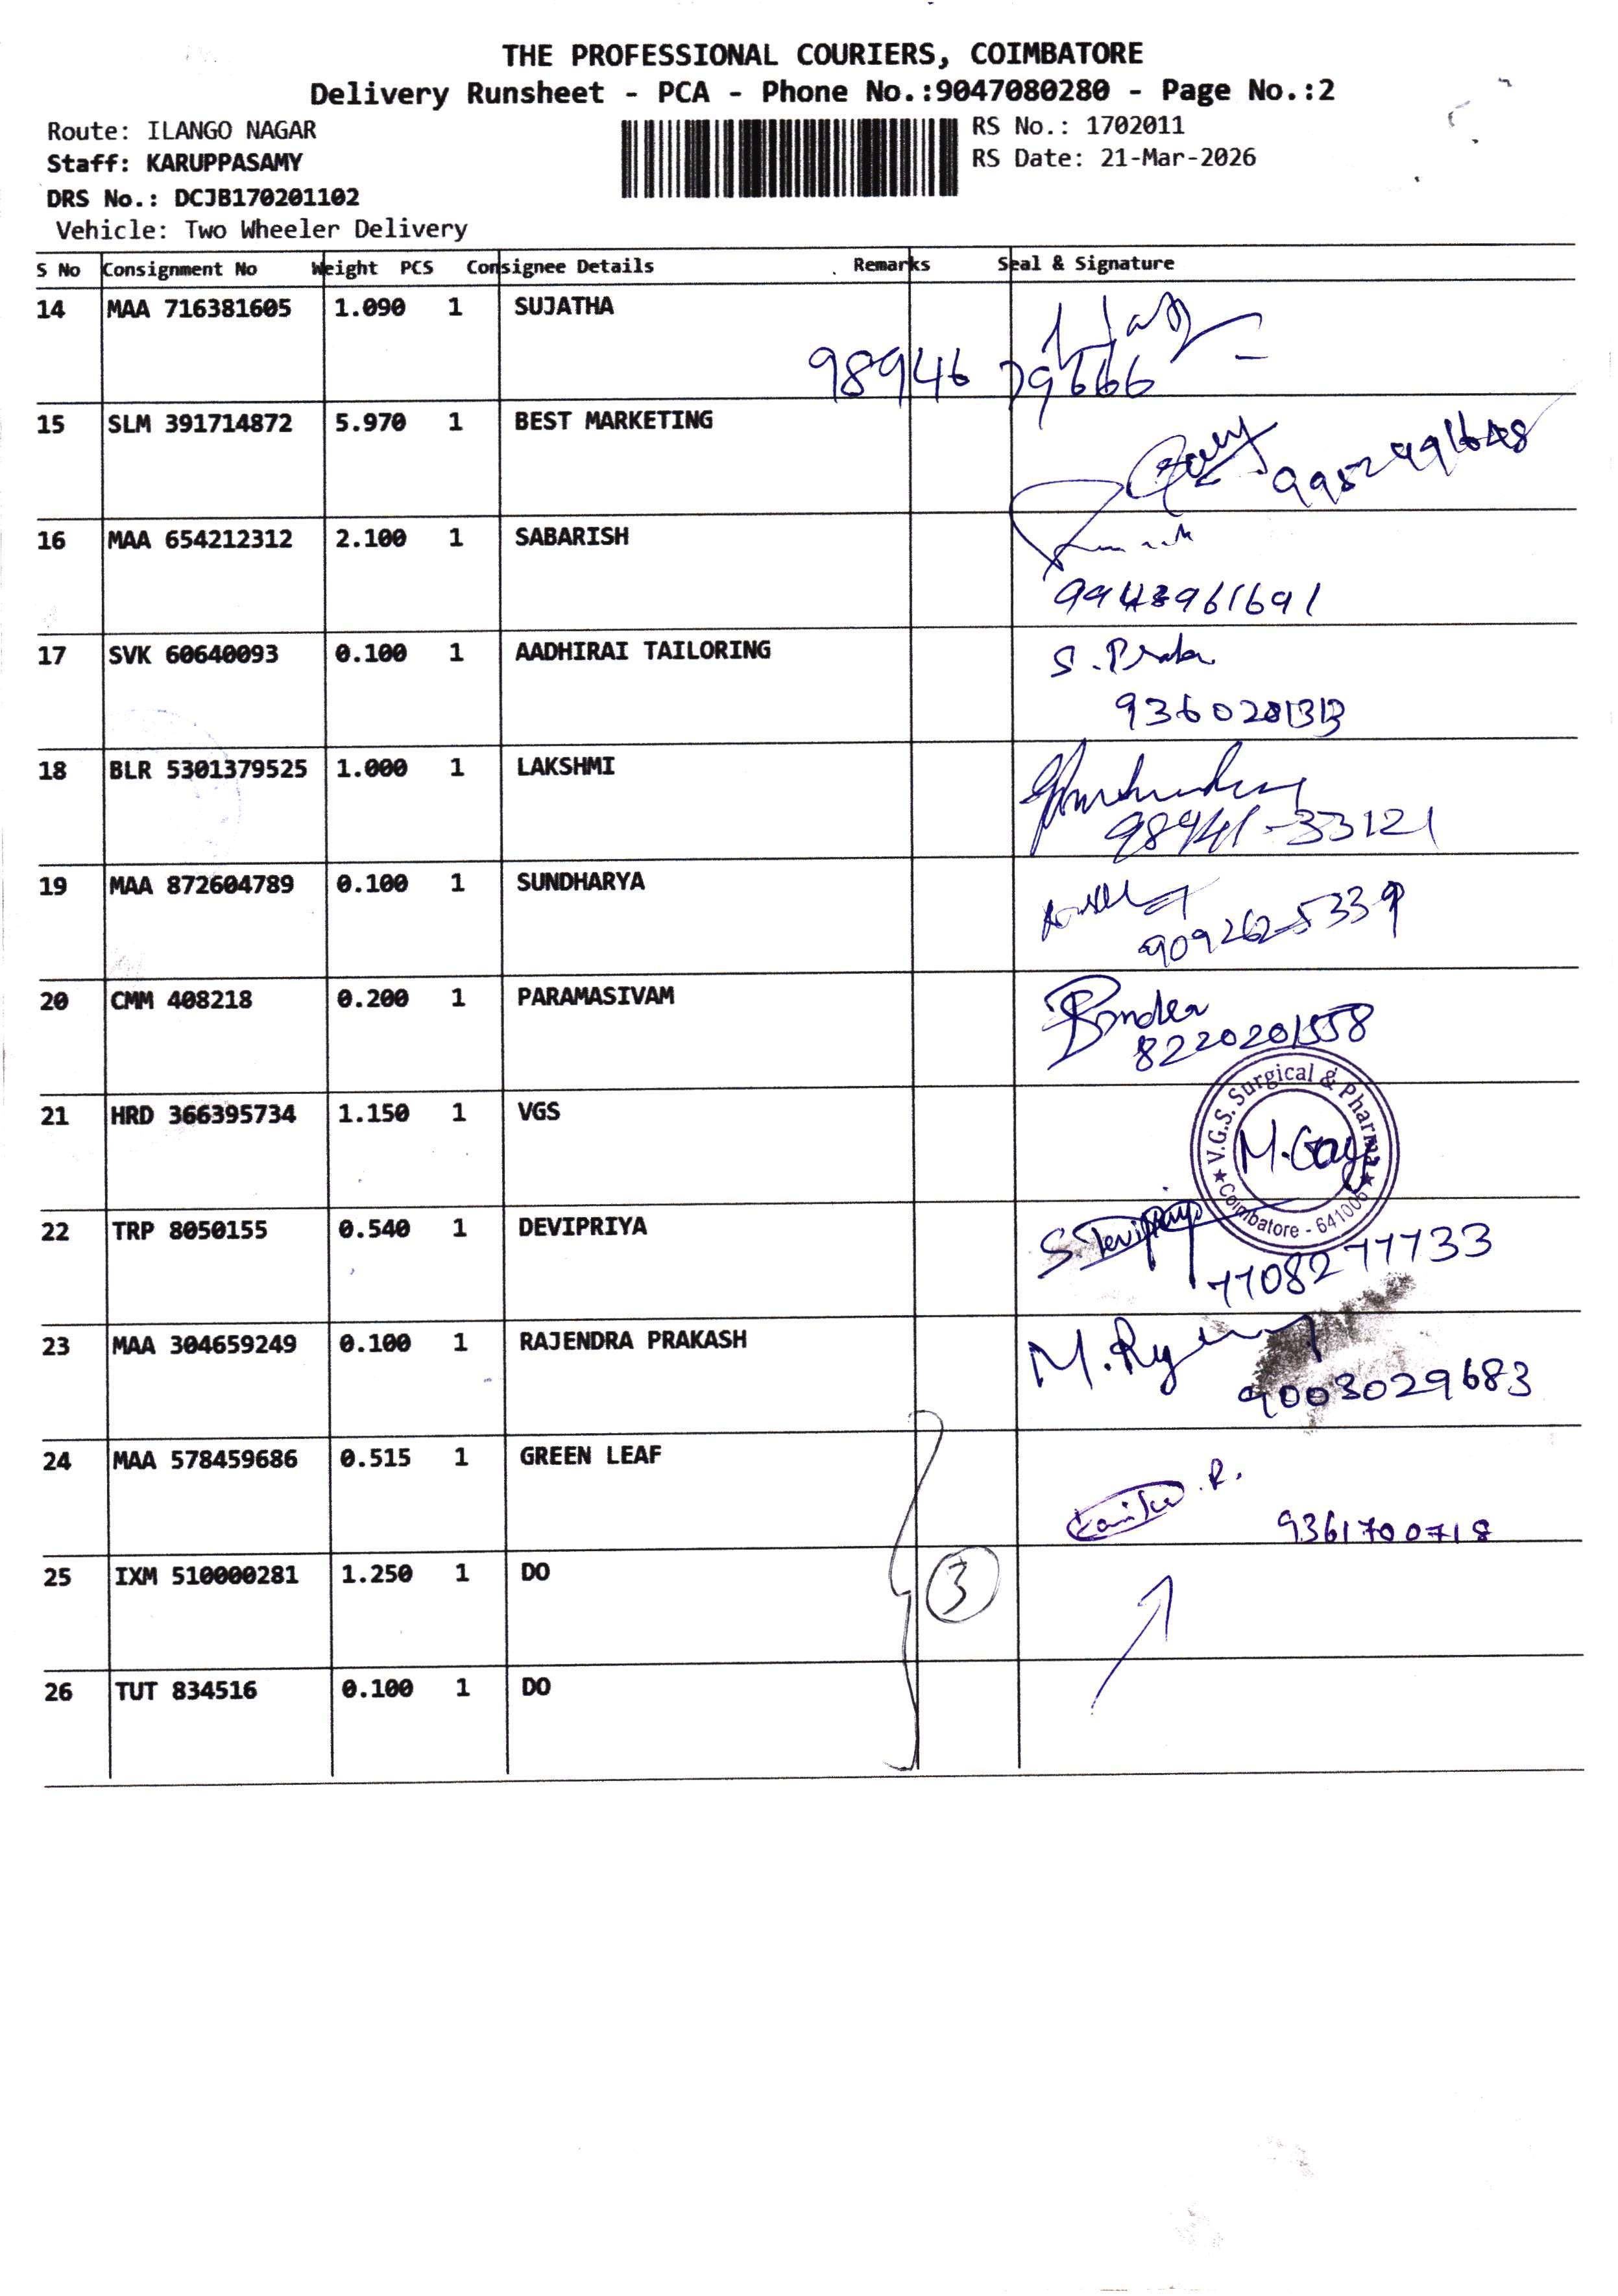 THE PROFESSIONAL COURIERS, COIMBATORE
Delivery Runsheet - PCA - Phone No.:9047080280 - Page No.:2
Route: ILANGO NAGAR
RS No.: 1702011
Staff: KARUPPASAMY
RS Date: 21-Mar-2026
DRS No.: DCJB170201102
Vehicle: Two Wheeler Delivery
S No Consignment No Weight PCS Consignee Details Remarks Seal & Signature
14 MAA 716381605 1.090 1 SUJATHA
98946 79666
15 SLM 391714872 5.970 1 BEST MARKETING
16 MAA 654212312 2.100 1 SABARISH
9943961691
17 SVK 60640093 0.100 1 AADHIRAI TAILORING
S.
18 BLR 5301379525 1.000 1 LAKSHMI
98941-33121
19 MAA 872604789 0.100 1 SUNDHARYA
9092625339
20 CMM 408218 0.200 1 PARAMASIVAM
8220201558
21 HRD 366395734 1.150 1 VGS
V.G.S. Surgical & Pharma
M.Gay
★ Coimbatore - 641006 ★
22 TRP 8050155 0.540 1 DEVIPRIYA
S. Devipriya
7708277733
23 MAA 304659249 0.100 1 RAJENDRA PRAKASH
M.
9003029683
24 MAA 578459686 0.515 1 GREEN LEAF
R.
9361700718
25 IXM 510000281 1.250 1 DO
3
26 TUT 834516 0.100 1 DO